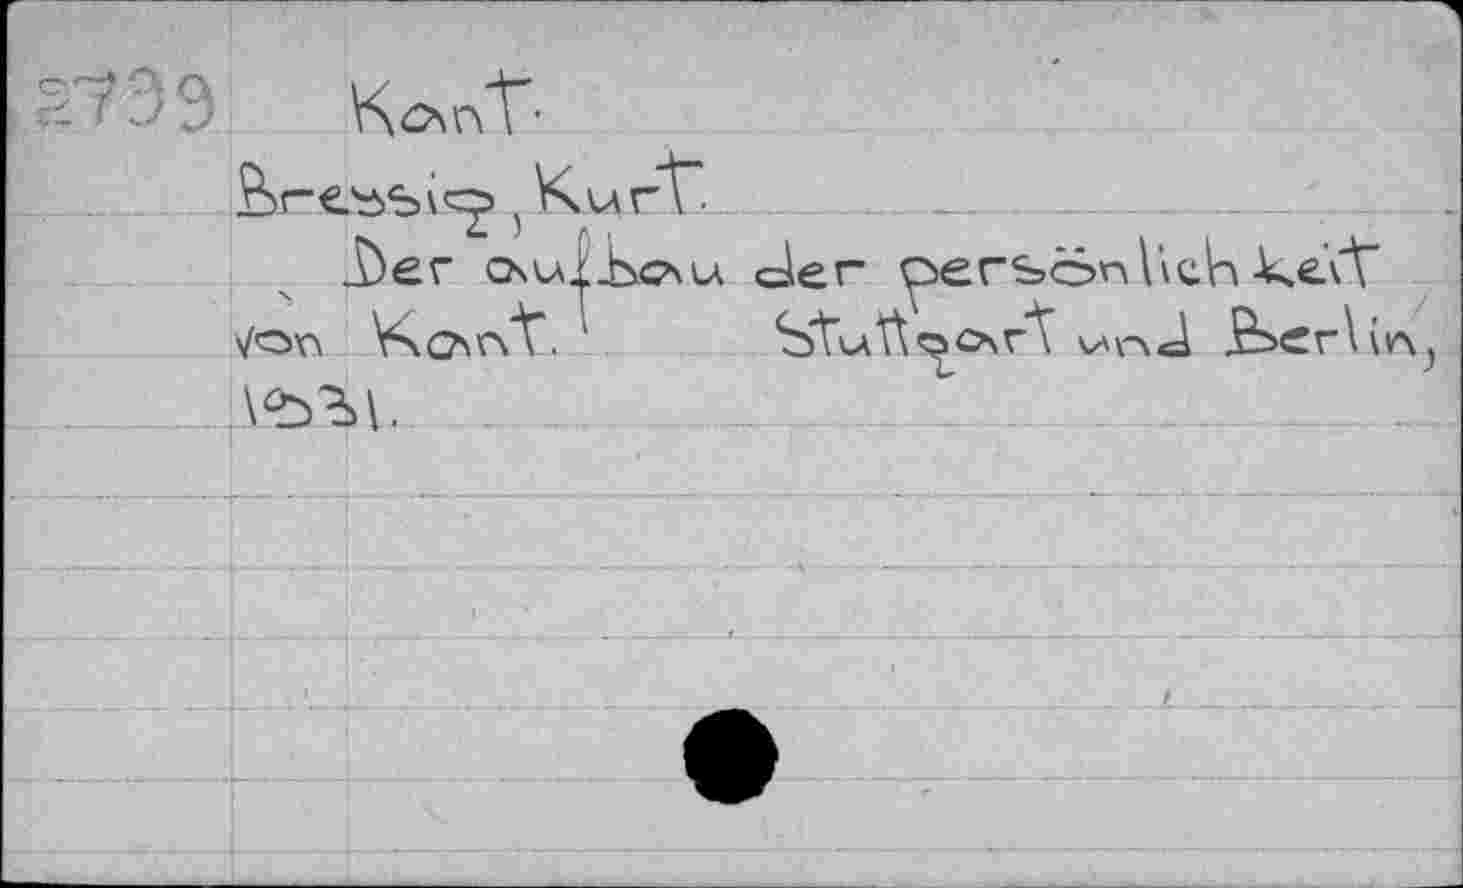 2739 Kant.
Bressig, Kurt.
Der aufbau der persönlichkeit
von Kant. Stuttgart und Berlin,
1931.